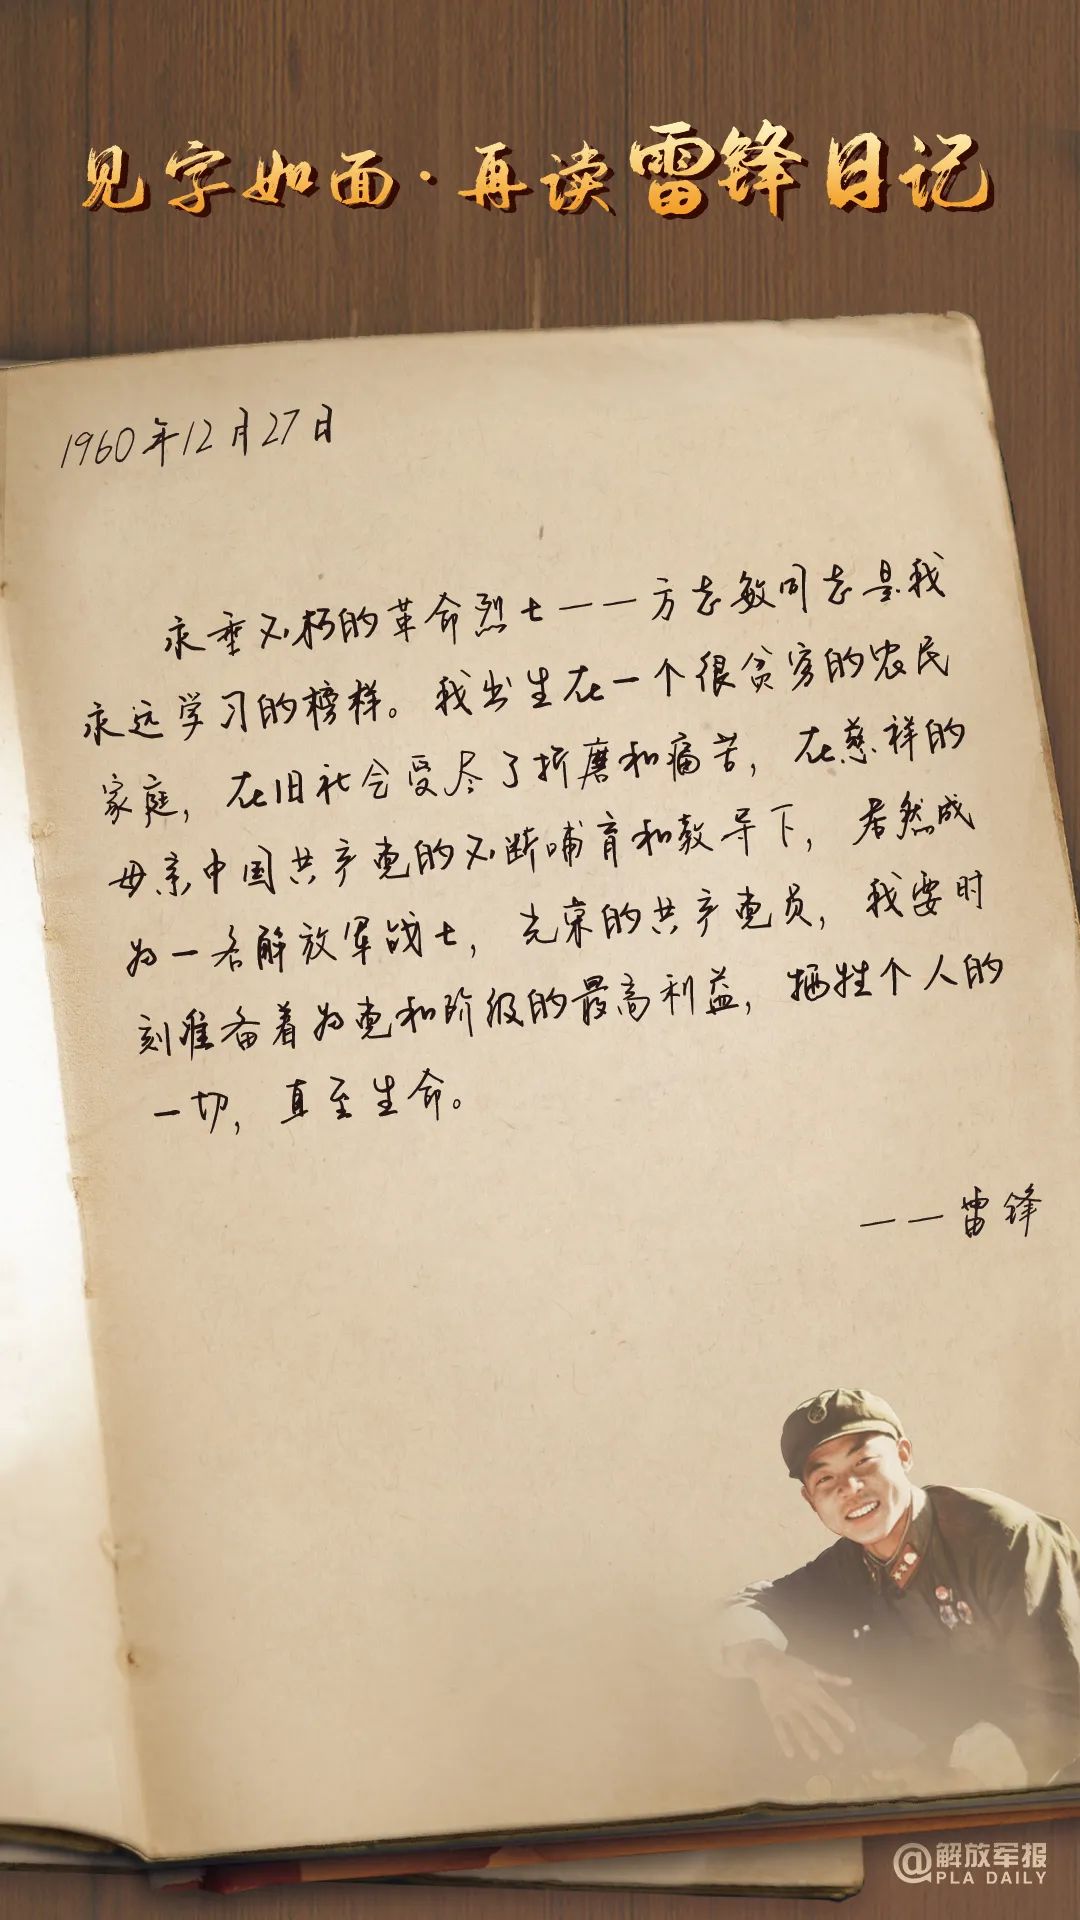 见字如面·再读雷锋日记
1960年12月27日
永垂不朽的革命烈士——方志敏同志是我
永远学习的榜样。我出生在一个很贫穷的农民
家庭，在旧社会受尽了折磨和痛苦，在慈祥的
母亲中国共产党的不断哺育和教导下，居然成
为一名解放军战士，光荣的共产党员，我要时
刻准备着为党和阶级的最高利益，牺牲个人的
一切，直至生命。
——雷锋
@解放军报
PLA DAILY